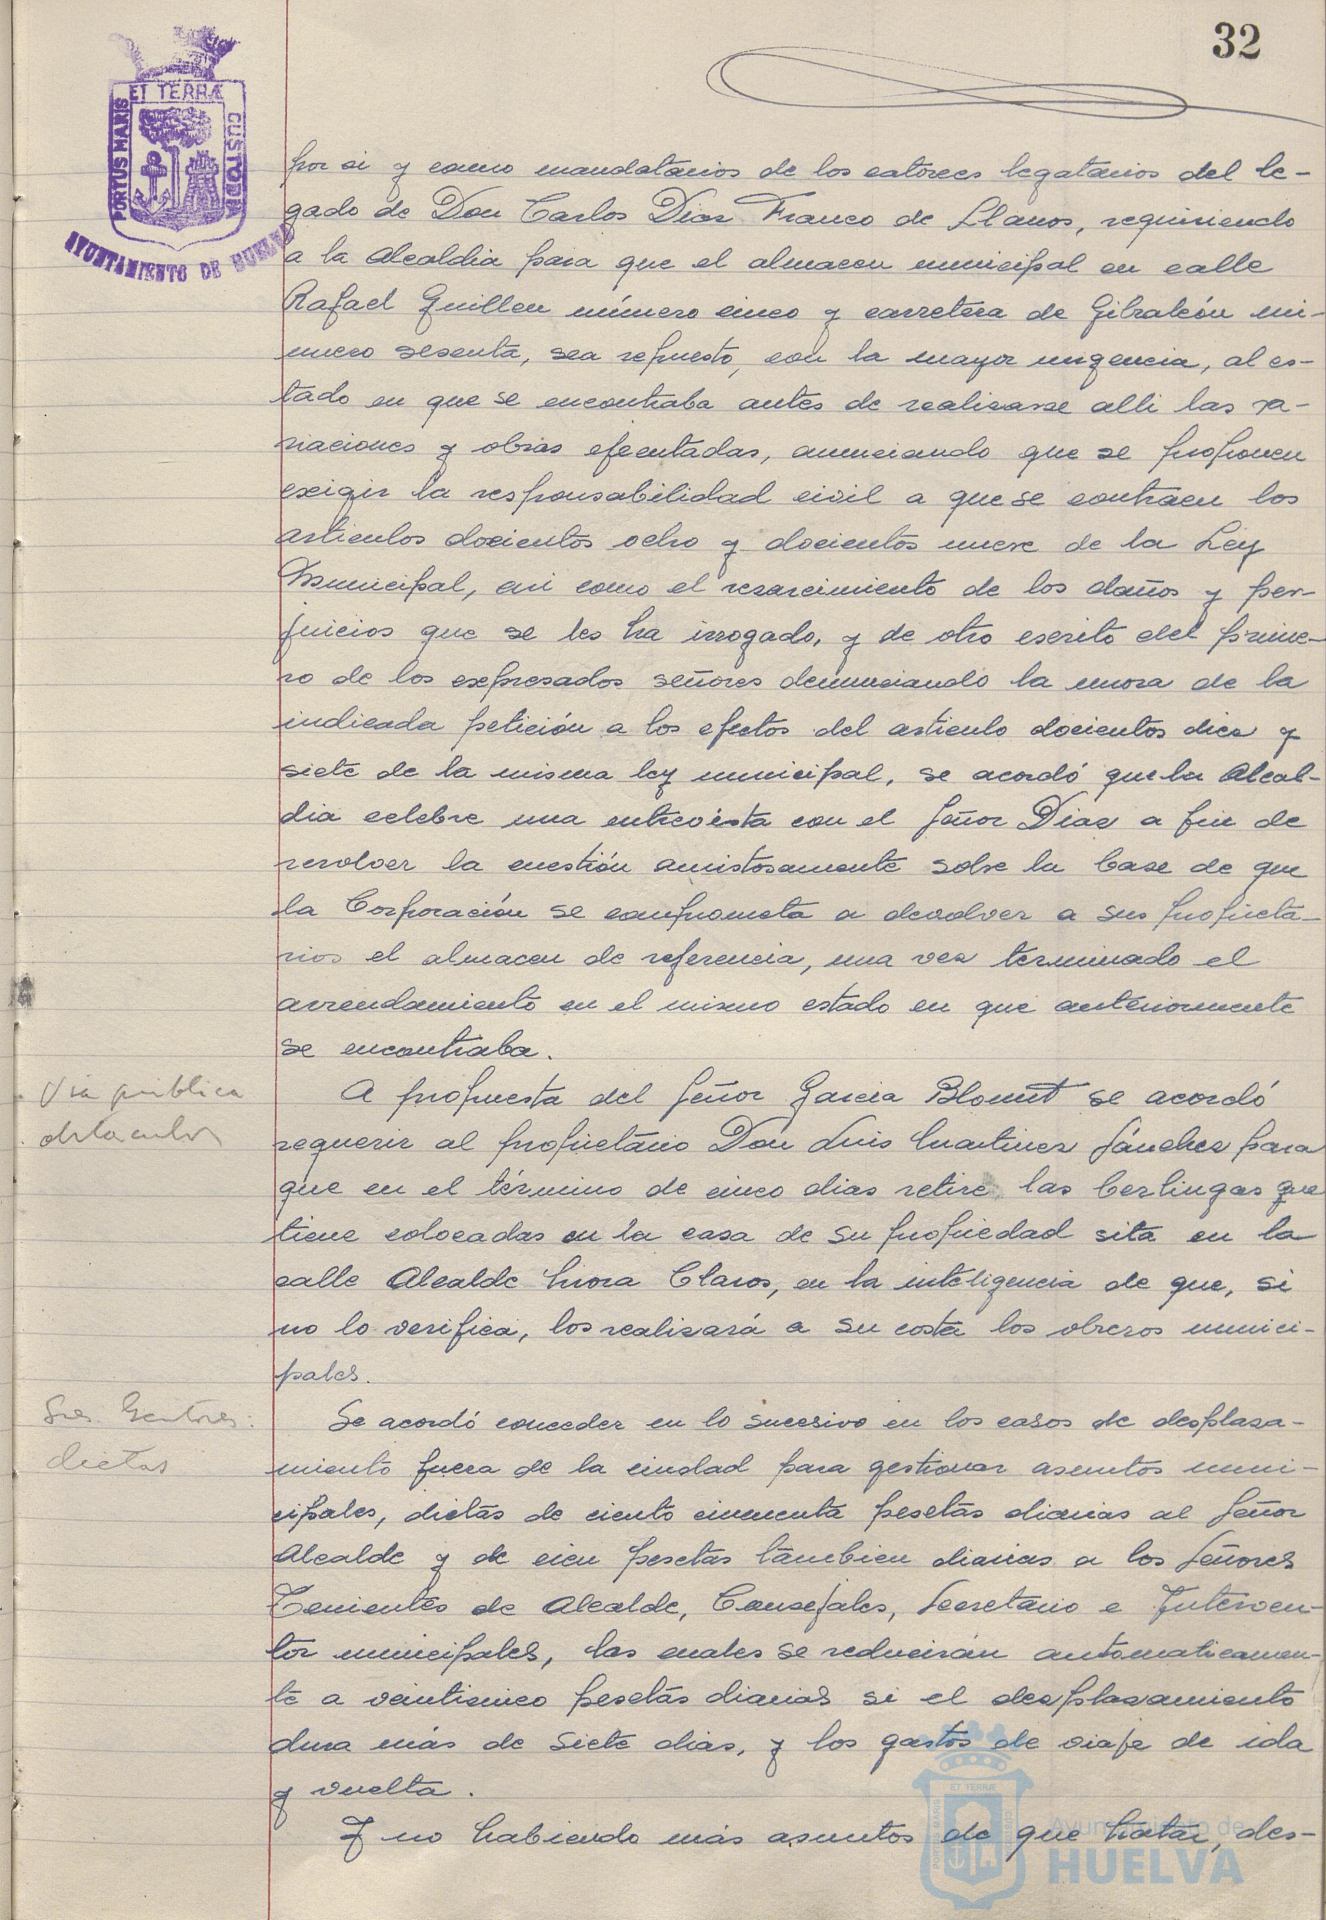 32
ET TERRÆ
PORTUS MARIS
CUSTODIA
AYUNTAMIENTO DE HUELVA
por si y como mandatarios de los catorces legatarios del le-
gado de Don Carlos Diaz Franco de Llanos, requiriendo
a la Alcaldia para que el almacen municipal en calle
Rafael Guillen número cinco y carretera de Gibraleón nú-
mero sesenta, sea repuesto, con la mayor urgencia, al es-
tado en que se encontraba antes de realizarse alli las va-
riaciones y obras efectuadas, anunciando que se proponen
exigir la responsabilidad civil a que se contraen los
articulos docientos ocho y docientos nueve de la Ley
Municipal, asi como el resarcimiento de los daños y per-
juicios que se les ha irrogado, y de otro escrito del prime-
ro de los expresados señores denunciando la mora de la
indicada petición a los efectos del articulo docientos diez y
siete de la misma ley municipal, se acordó que la Alcal-
dia celebre una entrevista con el Señor Diaz a fin de
resolver la cuestión amistosamente sobre la base de que
la Corporación se comprometa a devolver a sus propieta-
rios el almacen de referencia, una vez terminado el
arrendamiento en el mismo estado en que anteriormente
se encontraba.
Via publica
obstaculos
A propuesta del Señor Garcia Blount se acordó
requerir al propietario Don Luis Martinez Sánchez para
que en el término de cinco dias retire las berlingas que
tiene colocadas en la casa de su propiedad sita en la
calle Alcalde Mora Claros, en la inteligencia de que, si
no lo verifica, los realizará a su costa los obreros munici-
pales.
Sres. Gestores:
dietas
Se acordó conceder en lo sucesivo en los casos de desplaza-
miento fuera de la ciudad para gestionar asuntos muni-
cipales, dietas de ciento cincuenta pesetas diarias al Señor
Alcalde y de cien pesetas tambien diarias a los Señores
Tenientes de Alcalde, Consejales, Secretario e Interven-
tor municipales, las cuales se reducirán automaticamen-
te a veinticinco pesetas diarias si el desplazamiento
dura más de siete dias, y los gastos de viaje de ida
y vuelta.
Y no habiendo más asuntos de que tratar, des-
Ayuntamiento de
HUELVA